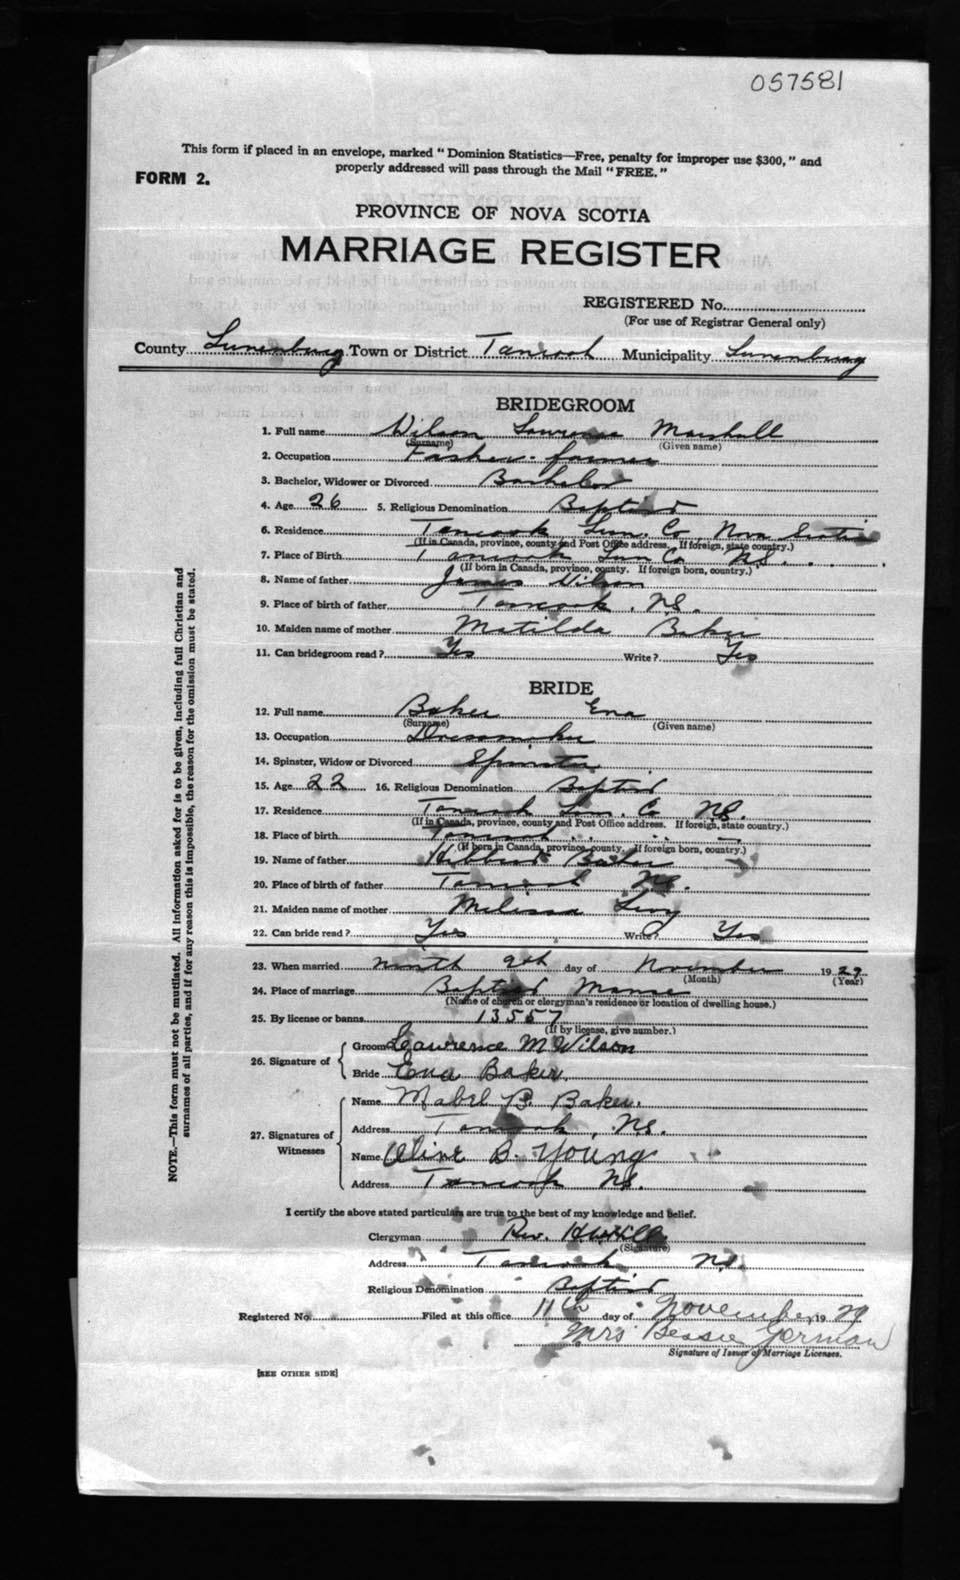 057581
This form if placed in an envelope, marked "Dominion Statistics—Free, penalty for improper use $300," and
properly addressed will pass through the Mail "FREE."
FORM 2.
PROVINCE OF NOVA SCOTIA
MARRIAGE REGISTER
REGISTERED No.
(For use of Registrar General only)
County Lunenburg Town or District Tancook Municipality Lunenburg
BRIDEGROOM
1. Full name Wilson Lawrence Marshall
(Surname) (Given name)
2. Occupation Fisher-farmer
3. Bachelor, Widower or Divorced Bachelor
4. Age 26 5. Religious Denomination Baptist
6. Residence Tancook Lun. Co Nova Scotia
(If in Canada, province, county and Post Office address. If foreign, state country.)
7. Place of Birth Tancook Lun Co N.S.
(If born in Canada, province, county. If foreign born, country.)
8. Name of father James Wilson
9. Place of birth of father Tancook, N.S.
10. Maiden name of mother Matilda Baker
11. Can bridegroom read? Yes Write? Yes
BRIDE
12. Full name Baker Ena
(Surname) (Given name)
13. Occupation Dressmaker
14. Spinster, Widow or Divorced Spinster
15. Age 22 16. Religious Denomination Baptist
17. Residence Tancook Lun. Co N.S.
(If in Canada, province, county and Post Office address. If foreign, state country.)
18. Place of birth Tancook
(If born in Canada, province, county. If foreign born, country.)
19. Name of father Hibbert Baker
20. Place of birth of father Tancook N.S.
21. Maiden name of mother Melissa Levy
22. Can bride read? Yes Write? Yes
23. When married ninth 9th day of November 1929
(Month) (Year)
24. Place of marriage Baptist Manse
(Name of church or clergyman's residence or location of dwelling house.)
25. By license or banns 13557
(If by license, give number.)
26. Signature of
Groom Lawrence M Wilson
Bride Ena Baker.
27. Signatures of Witnesses
Name Mabel B. Baker.
Address Tancook, N.S.
Name Olive B. Young
Address Tancook N.S.
I certify the above stated particulars are true to the best of my knowledge and belief.
Clergyman Rev.
(Signature)
Address Tancook N.S.
Religious Denomination Baptist
Registered No. Filed at this office 11th day of November, 1929
Mrs Bessie German
Signature of Issuer of Marriage Licenses.
[SEE OTHER SIDE]
NOTE.—This form must not be mutilated. All information asked for is to be given, including full Christian and
surnames of all parties, and if for any reason this is impossible, the reason for the omission must be stated.